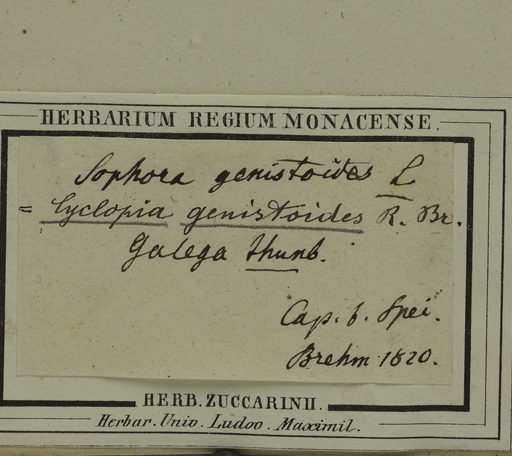 HERBARIUM REGIUM MONACENSE.
Sophora genistoides L
= Cyclopia genistoides R. Br.
Galega Thunb.
Cap. b. Spei.
Brehm 1820.
HERB. ZUCCARINII.
Herbar. Univ. Ludov. Maximil.